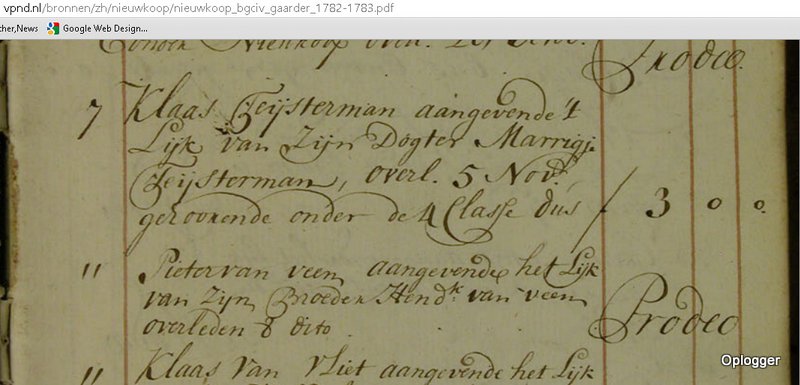 vpnd.nl/bronnen/zh/nieuwkoop/nieuwkoop_bgciv_gaarder_1782-1783.pdf
ther,News Google Web Design...
Prodeo.
7 Klaas Teijsterman aangevende 't
Lijk van Zijn Dogter Marrigj.
Teijsterman, overl. 5 Nov.
gehoorende onder de 4 Classe dus / 3 0 0.
11 Pieter van veen aangevende het Lijk
van Zijn Broeder Hendk. van veen
overleden 8 dito. Prodeo
11 Klaas Van Vliet aangevende het Lijk
Oplogger